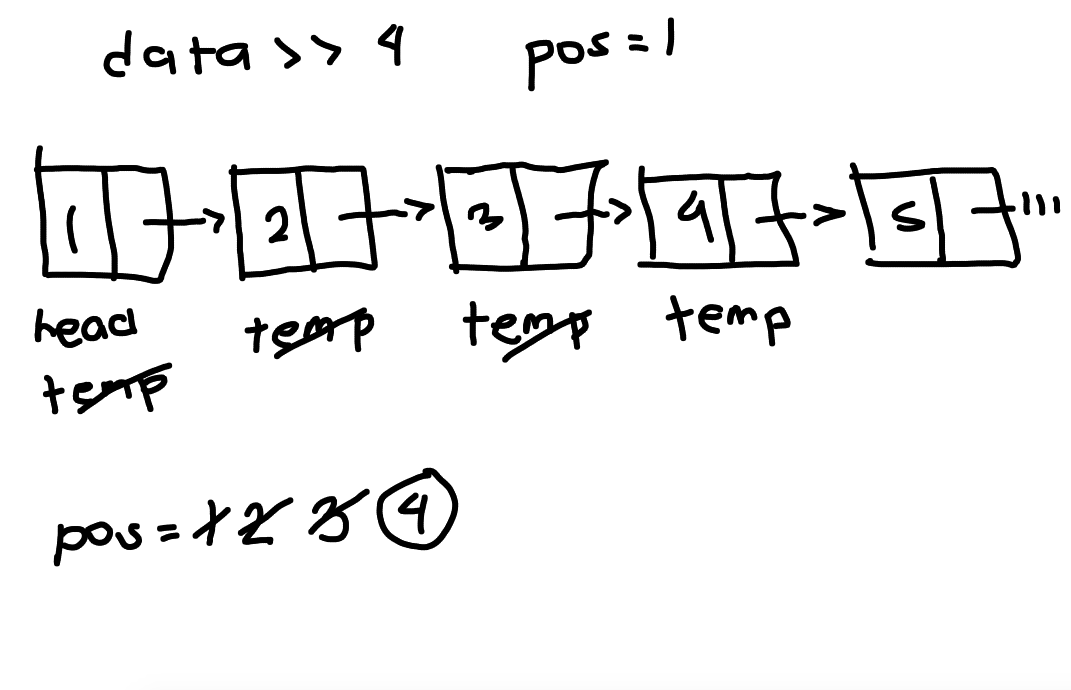 data >> 4 pos = 1
1 → 2 → 3 → 4 → 5 ...
head temp temp temp
temp
pos = 1 2 3 4